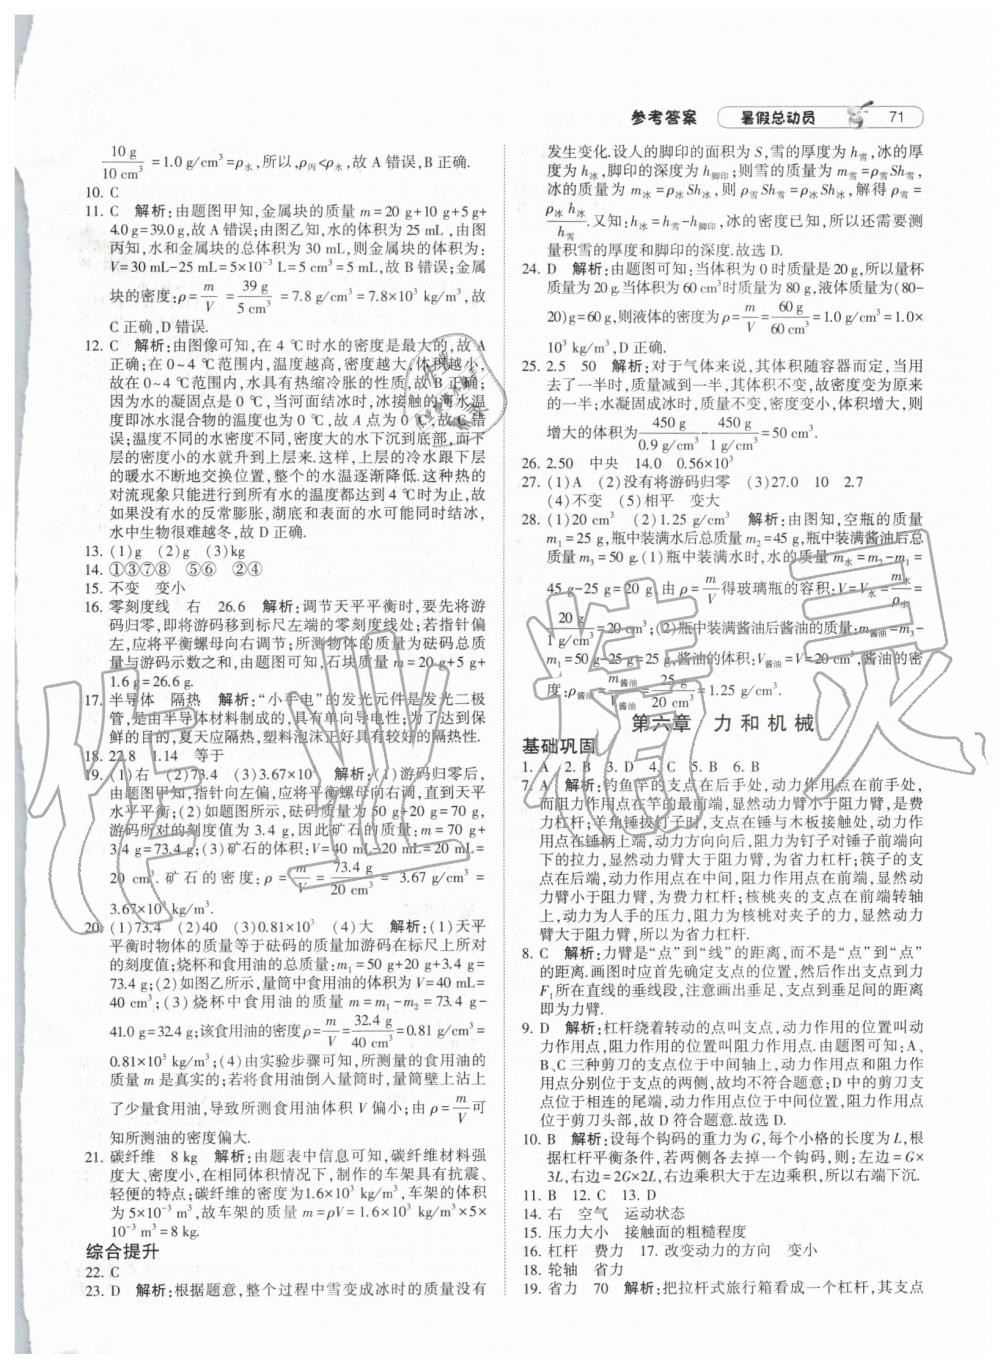 参考答案 暑假总动员 71
10 g/10 cm³=1.0 g/cm³=ρ水,所以,ρ丙<ρ水,故 A 错误,B 正确.
10. C
11. C 解析:由题图甲知,金属块的质量 m=20 g+10 g+5 g+
4.0 g=39.0 g,故 A 错误;由图乙知,水的体积为 25 mL,由图
丙知,水和金属块的总体积为 30 mL,则金属块的体积为:
V=30 mL-25 mL=5×10⁻³ L=5 cm³=5 mL,故 B 错误;金属
块的密度:ρ=m/V=39 g/5 cm³=7.8 g/cm³=7.8×10³ kg/m³,故
C 正确,D 错误.
12. C 解析:由图像可知,在 4 ℃时水的密度是最大的,故 A
正确;在 0~4 ℃范围内,温度越高,密度越大,体积越小,
故在 0~4 ℃范围内,水具有热缩冷胀的性质,故 B 正确;
因为水的凝固点是 0 ℃,当河面结冰时,冰接触的河水温
度即冰水混合物的温度也为 0 ℃,故 A 点为 0 ℃,故 C 错
误;温度不同的水密度不同,密度大的水下沉到底部,而干
密度小的水就升到上层来.这样,上层的冷水跟下层
的暖水不断地交换位置,整个的水温逐渐降低.这种热的
对流现象只能进行到所有水的温度都达到 4 ℃时为止,故
如果没有水的反常膨胀,湖底和表面的水可能同时结冰,
水中生物很难越冬,故 D 正确.
13. (1)g (2)g (3)kg
14. ①③⑦⑧ ⑤⑥ ②④
15. 不变 变小
16. 零刻度线 右 26.6 解析:调节天平平衡时,要先将游
码归零,即将游码移到标尺左端的零刻度线处;若指针偏
左,应将平衡螺母向右调节;所测物体的质量为砝码总质
量与游码示数之和,由题图可知,石块质量 m=20 g+5 g+
1.6 g=26.6 g.
17. 半导体 隔热 解析:“小丰电”的发光元件是发光二极
管,是由半导体材料制成的,具有单向导电性;为了达到保
鲜的目的,夏天应隔热,塑料泡沫正好具有隔热特性.
18. 22.8 1.14 等于
19. (1)右 (2)73.4 (3)3.67×10³ 解析:(1)游码归零后,
由题图甲可知,指针向左,应将平衡螺母向右调,直到天平
水平平衡;(2)如题图所示,砝码质量为 50 g+20 g=70 g,
游码所对的刻度值为 3.4 g,因此矿石的质量为:m=70 g+
3.4 g=73.4 g;(3)矿石的体积:V=40 mL-20 mL=20 mL=
20 cm³.矿石的密度:ρ=m/V=73.4 g/20 cm³=3.67 g/cm³=
3.67×10³ kg/m³.
20. (1)73.4 (2)40 (3)0.81×10³ (4)大 解析:(1)天平
平衡时物体的质量等于砝码的质量加游码在标尺上所对
的刻度值;烧杯和食用油的总质量:m₁=50 g+20 g+3.4 g=
73.4 g;(2)如图乙所示,量筒中食用油的体积为 V=40 mL=
40 cm³;(3)烧杯中食用油的质量 m=m₁-m₂=73.4 g-
41.0 g=32.4 g;该食用油的密度ρ=m/V=32.4 g/40 cm³=0.81 g/cm³=
0.81×10³ kg/m³;(4)由实验步骤可知,所测量的食用油的
质量 m 是真实的;若将食用油倒入量筒时,量筒壁上沾上
了少量食用油,导致所测食用油体积 V 偏小;由ρ=m/V可
知所测油的密度偏大.
21. 碳纤维 8 kg 解析:由题表中信息可知,碳纤维材料强
度大、密度小,在相同体积情况下,制作的车架具有抗震、
轻便的特点;碳纤维的密度为1.6×10³ kg/m³,车架的体积
为 5×10⁻³ m³,故车架的质量 m=ρV=1.6×10³ kg/m³×5×
10⁻³ m³=8 kg.
综合提升
22. C
23. D 解析:根据题意,整个过程中雪变成冰时的质量没有
发生变化.设人的脚印的面积为 S,雪的厚度为 h雪,冰的厚
度为 h冰,脚印的深度为 h脚印;则雪的质量为 m雪=ρ雪Sh雪,
冰的质量为 m冰=ρ冰Sh冰,则 ρ雪Sh雪=ρ冰Sh冰,解得 ρ雪=
ρ冰h冰/h雪.又知:h冰=h雪-h脚印,冰的密度已知,所以还需要测
量积雪的厚度和脚印的深度.故选 D.
24. D 解析:由题图可知:当体积为 0 时质量是 20 g,所以量杯
质量为 20 g.当体积为 60 cm³时质量为 80 g,液体质量为(80-
20)g=60 g,则液体的密度为ρ=m/V=60 g/60 cm³=1.0 g/cm³=1.0×
10³ kg/m³,D 正确.
25. 2.5 50 解析:对于气体来说,其体积随容器而定,当用
去了一半时,质量减到一半,其体积不变,故密度变为原来
的一半;水凝固成冰时,质量不变,密度变小,体积增大,则
增大的体积为450 g/0.9 g/cm³-450 g/1 g/cm³=50 cm³.
26. 2.50 中央 14.0 0.56×10³
27. (1)A (2)没有将游码归零 (3)27.0 10 2.7
(4)不变 (5)相平 变大
28. (1)20 cm³ (2)1.25 g/cm³ 解析:由图知,空瓶的质量
m₁=25 g,瓶中装满水后总质量 m₂=45 g,瓶中装满酱油后总
质量m₃=50 g.(1)瓶中装满水时,水的质量 m水=m₂-m₁=
45 g-25 g=20 g,由ρ=m/V得玻璃瓶的容积:V=V水=m水/ρ水=
20 g/1 g/cm³=20 cm³;(2)瓶中装满酱油后酱油的质量:m酱油=m₃-
m₁=50 g-25 g=25 g,酱油的体积:V酱油=V=20 cm³,酱油的密
度:ρ酱油=m酱油/V酱油=25 g/20 cm³=1.25 g/cm³.
第六章 力和机械
基础巩固
1. A 2. B 3. D 4. C 5. B 6. B
7. A 解析:钓鱼竿的支点在后手处,动力作用点在前手处,
而阻力作用点在竿的最前端,显然动力臂小于阻力臂,是费
力杠杆;羊角锤拔钉子时,支点在锤与木板接触处,动力作
用点在锤柄上端,动力方向向后,阻力为钉子对锤子前端向
下的拉力,显然动力臂大于阻力臂,为省力杠杆;筷子的支
点在后端,动力作用点在中间,阻力作用点在前端,显然动
力臂小于阻力臂,为费力杠杆;核桃夹的支点在前端转轴
上,动力为人手的压力,阻力为核桃对夹子的力,显然动力
臂大于阻力臂,所以为省力杠杆.
8. C 解析:力臂是“点”到“线”的距离,而不是“点”到“点”
的距离.画图时应首先确定支点的位置,然后作出支点到力
F₁所在直线的垂线段,注意画出垂足,支点到垂足间的距离
即为力臂.
9. D 解析:杠杆绕着转动的点叫支点,动力作用的位置叫动
力作用点,阻力作用的位置叫阻力作用点.由题图可知:A、
B、C 三种剪刀的支点位于中间轴上,动力作用点和阻力作
用点分别位于支点的两侧,故均不符合题意;D 中的剪刀支
点位于相连的尾端,动力作用点位于中间位置,阻力作用点
位于剪刀头部,故 D 符合题意.故选 D.
10. B 解析:设每个钩码的重力为 G,每个小格的长度为 L,根
据杠杆平衡条件,若两侧各去掉一个钩码,则:左边=G×
3L,右边=2G×2L,右边积大于左边乘积,所以右端下沉.
11. B 12. C 13. D
14. 右 空气 运动状态
15. 压力大小 接触面的粗糙程度
16. 杠杆 费力 17. 改变动力的方向 变小
18. 轮轴 省力
19. 省力 70 解析:把拉杆式旅行箱看成一个杠杆,其支点
作业精灵